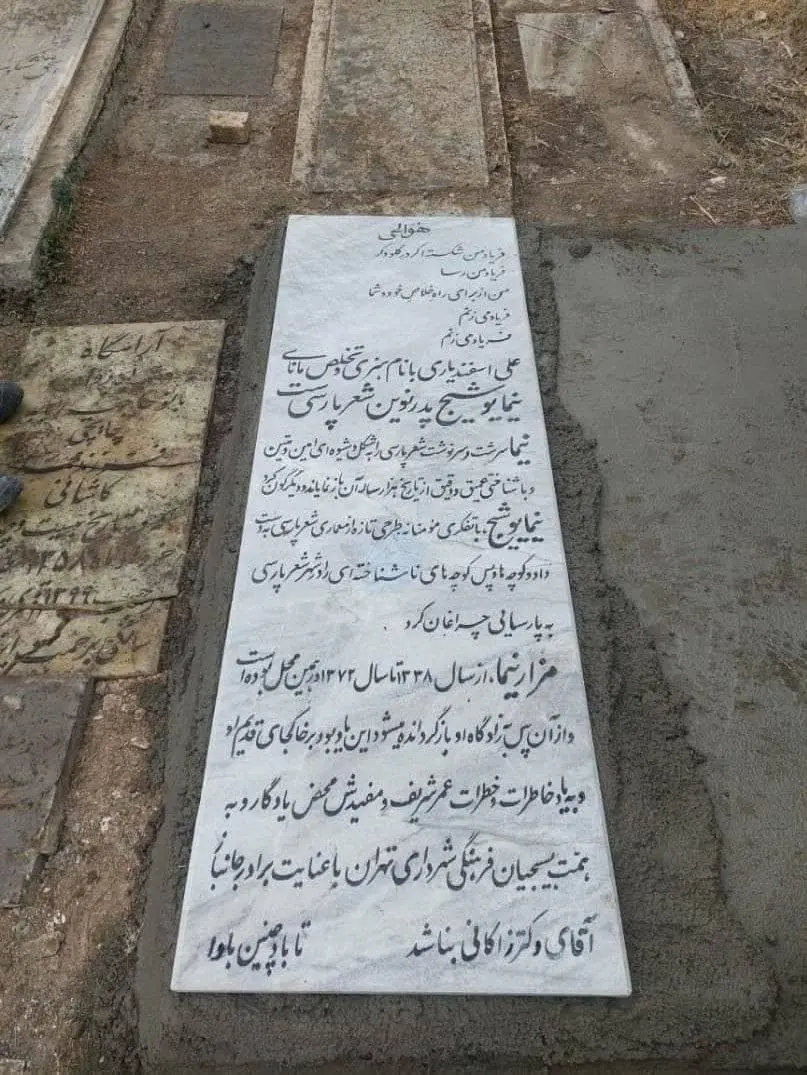 هوالحی
فریاد من شکسته اگر در گلو وگر
فریاد من رسا
من از برای راه خلاص خود و شما
فریاد می زنم
فریاد می زنم
علی اسفندیاری با نام هنری و تخلص مانای
نیما یوشیج پدر نوین شعر پارسی است
نیما سرشت و سرنوشت شعر پارسی را به شکل و شیوه ای امین و متین
و با شناختی عمیق و دقیق از تاریخ هزار ساله آن باز نمایاند و دیگرگون کرد
نیما یوشیج، با تفکری مؤمنانه طرحی تازه از معماری شعر پارسی به دست
داد و کوچه ها و پس کوچه های ناشناخته ای را در شهر شعر پارسی
به پارسایی چراغان کرد.
مزار نیما، از سال ۱۳۳۸ تا سال ۱۳۷۲ در همین محل بوده است
و از آن پس به زادگاه او باز گردانده میشود این یادبود بر خاکجای قدیم او
و به یاد خاطرات و خطرات عمر شریف و مفیدش محض یادگار و به
همت بسیجیان فرهنگی شهرداری تهران با عنایت برادر جانباز
آقای دکتر زاکانی بنا شد تا باد چنین بادا
آرامگاه
کاشانی